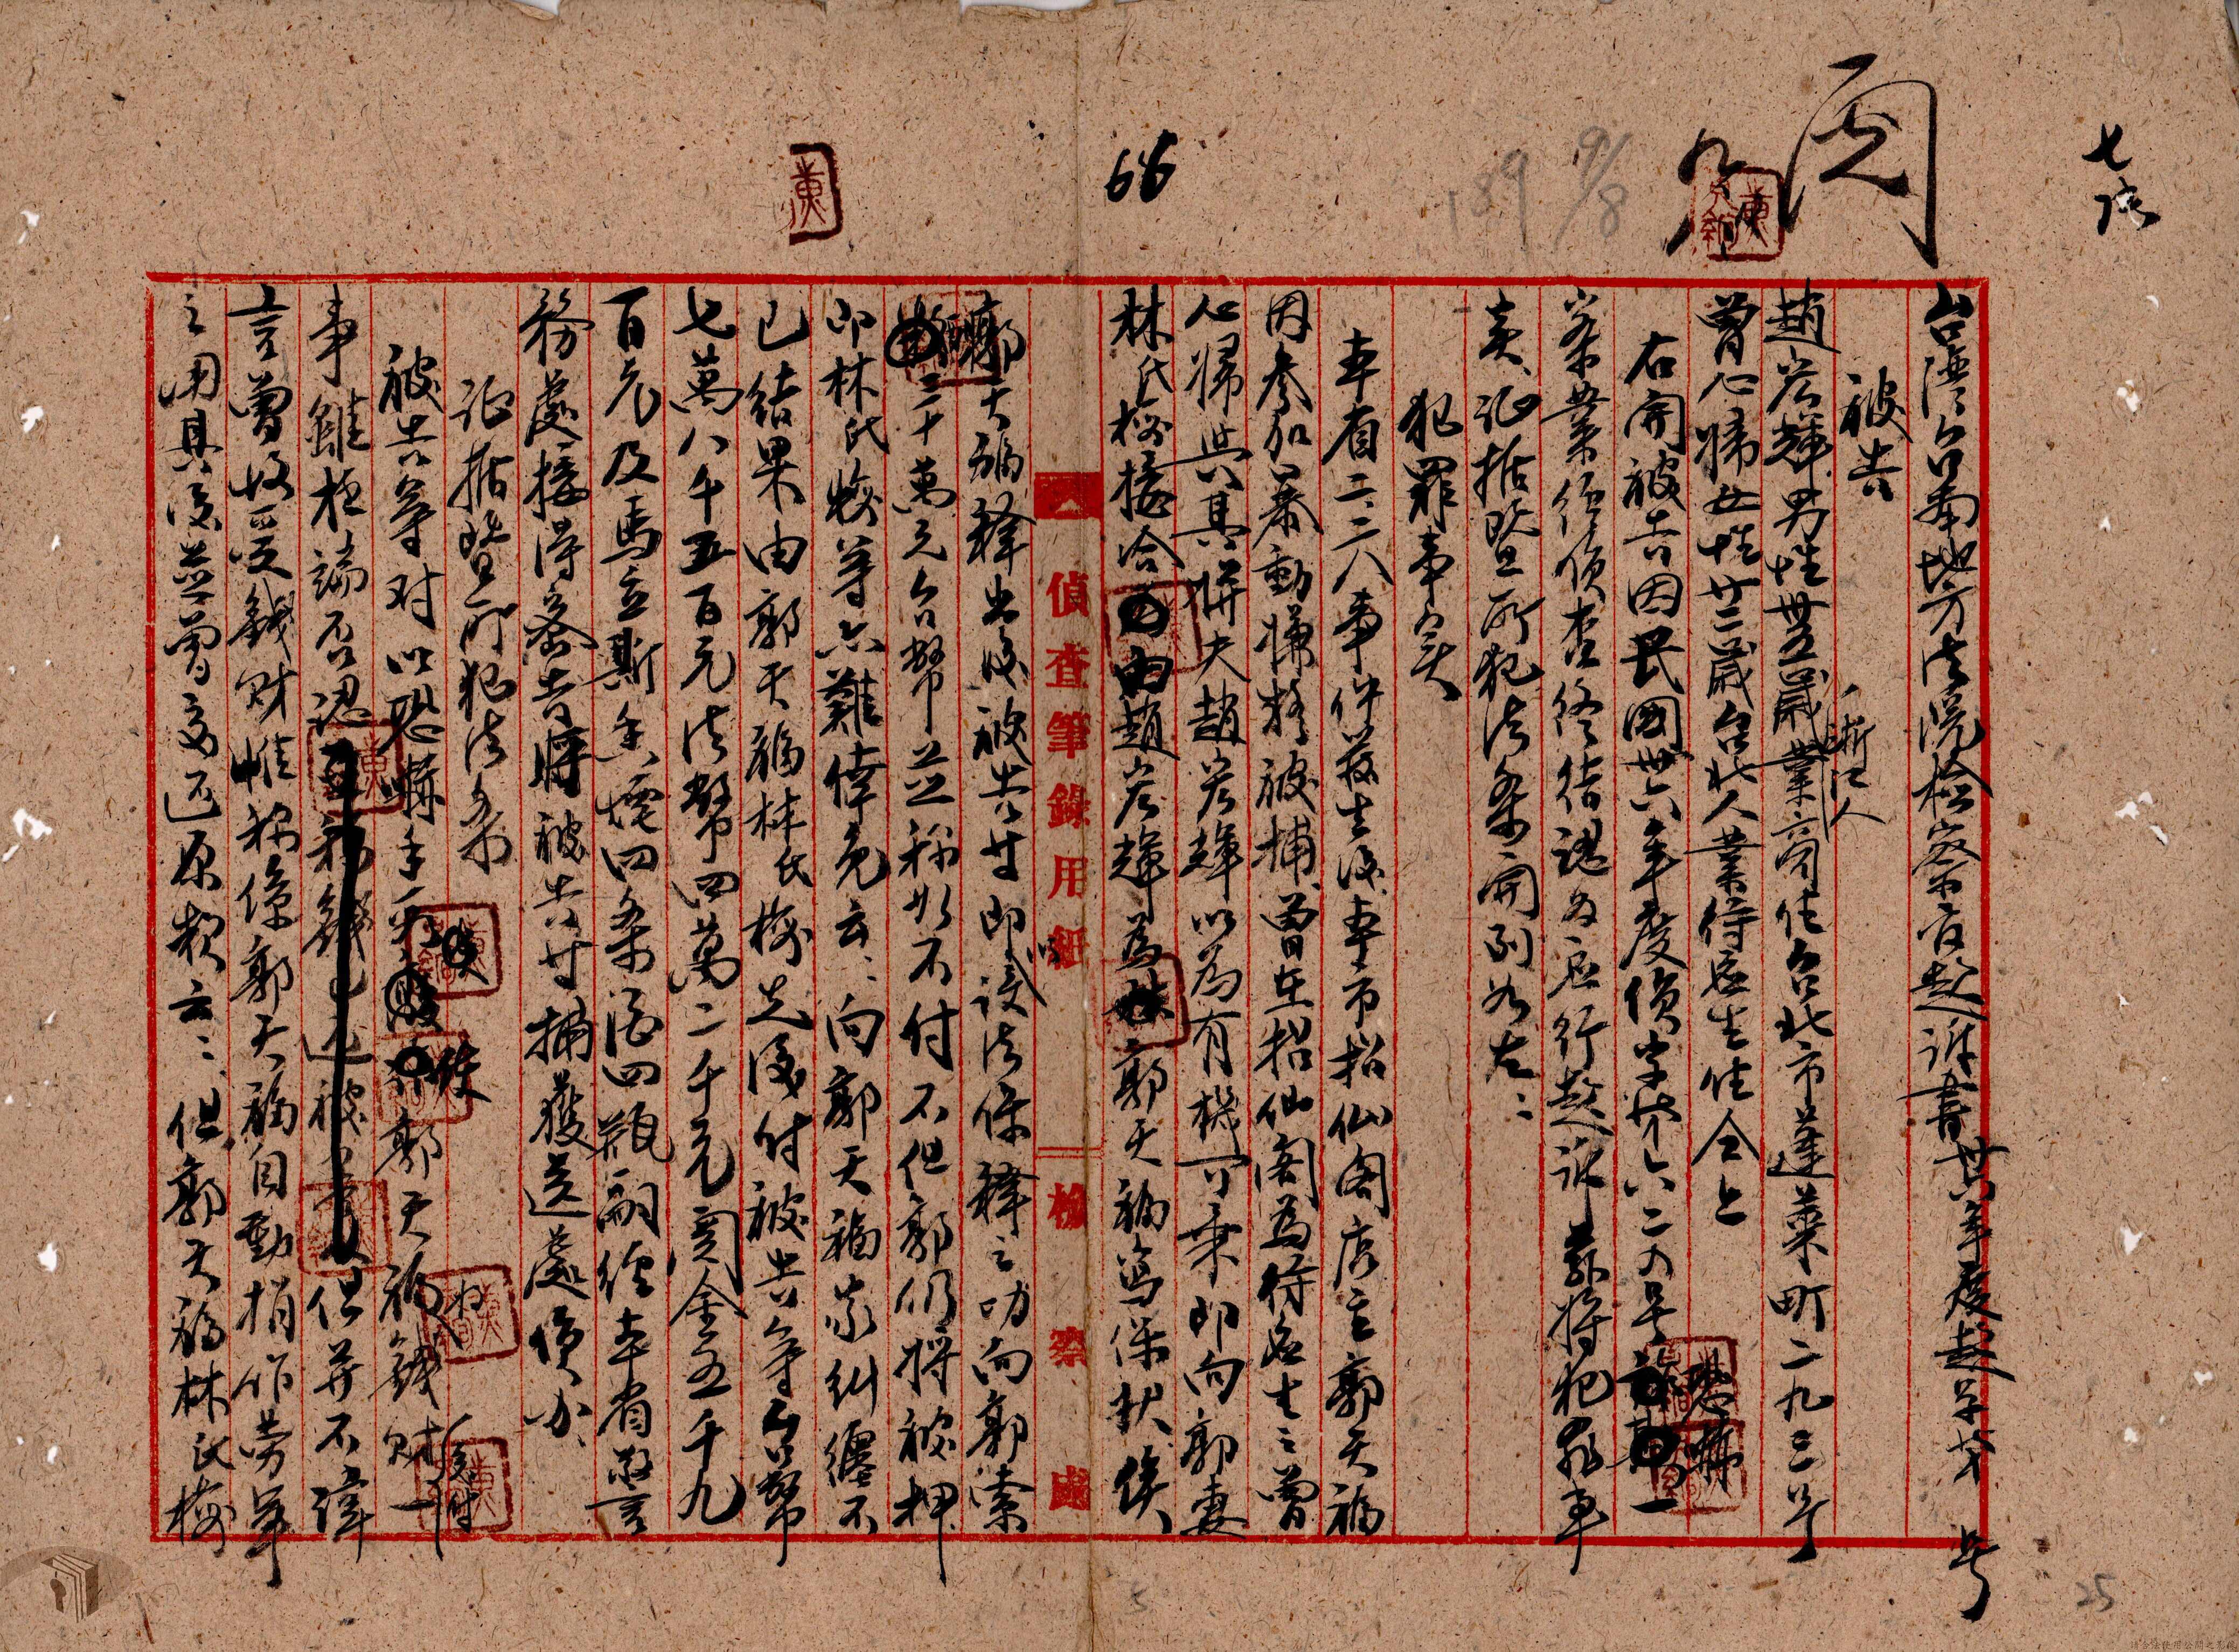 七孩
閱
66
189 9/8
黃
台灣台南地方法院檢察官起訴書 卅六年度起字第 號
被告
趙岩輝男性卅五歲浙江人業商住台北市蓬萊町二九三號
曾心婦女性廿二歲台北人業待应生住仝上
右開被告因民國卅六年度偵字第六二四号恐嚇一
案業經偵查終結認為应行起訴茲將犯罪事
實、証據暨所犯法条開列如左：
犯罪事實
本省二、二八事件發生後本市招仙閣店主郭天福
因參加暴動嫌疑被捕曾在招仙閣為待应生之曾
心婦與其姘夫趙岩輝以為有機可乘即向郭妻
林氏梅接洽由趙岩輝為郭天福寫保狀俟
偵查筆錄用紙
檢察處
郭天福釋出後被告等即以設法保釋之功向郭索
二十萬元台幣並称如不付不但郭仍將被押
即林氏梅等亦難倖免云云向郭天福家糾纏不
已結果由郭天福林氏梅先後付被告等台幣
七萬八千五百元法幣四萬二千元関金五千九
百元及馬立斯香煙四条酒四瓶嗣經本省警
務處接得密告將被告等捕獲送處偵办
証據暨所犯法条
被告等对以恐嚇手段使郭天福將錢財交付
事雖極端否認但并不諱
言曾收受錢財惟称係郭天福自動捐作勞军
之用其後並曾交还原款云云但郭天福林氏梅
25